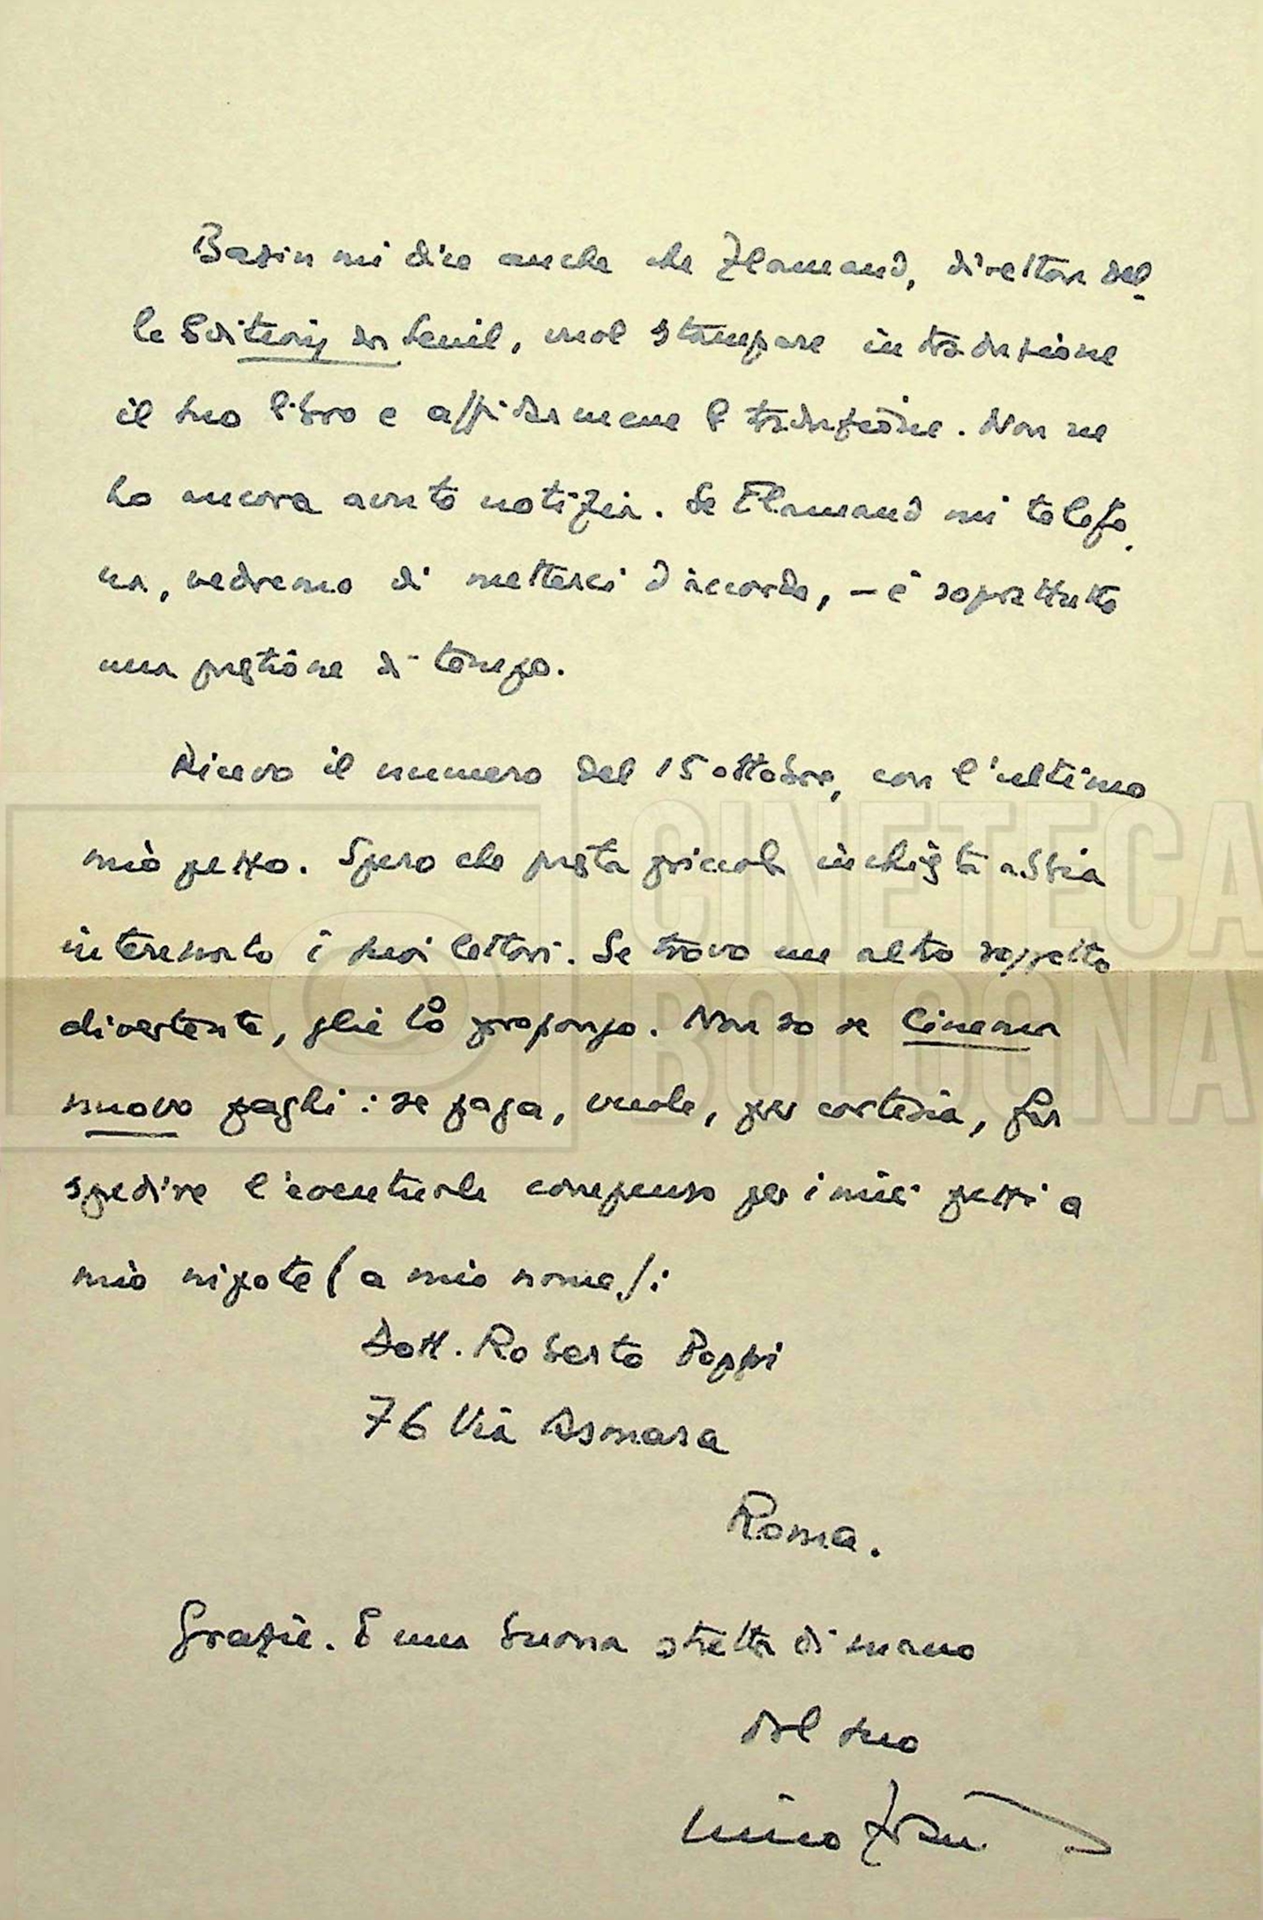 Bazin mi dice anche che Flamand, direttore del-
le Editions du Seuil, vuol stampare in traduzione
il suo libro e affidarmene la traduzione. Non ne
ho ancora avuto notizia. Se Flamand mi telefo-
na, vedremo di metterci d'accordo, – è soprattutto
una questione di tempo.
Ricevo il numero del 15 ottobre, con l'ultimo
mio pezzo. Spero che questa piccola inchiesta abbia
interessato i suoi lettori. Se trovo un altro soggetto
divertente, glie lo propongo. Non so se Cinema
nuovo paghi: se paga, vuole, per cortesia, far
spedire l'eventuale compenso per i miei pezzi a
mio nipote (a mio nome):
Dott. Roberto Poppi
76 Via Asmara
Roma.
Grazie. E una buona stretta di mano
dal suo
Nino Frank
CINETECA
BOLOGNA